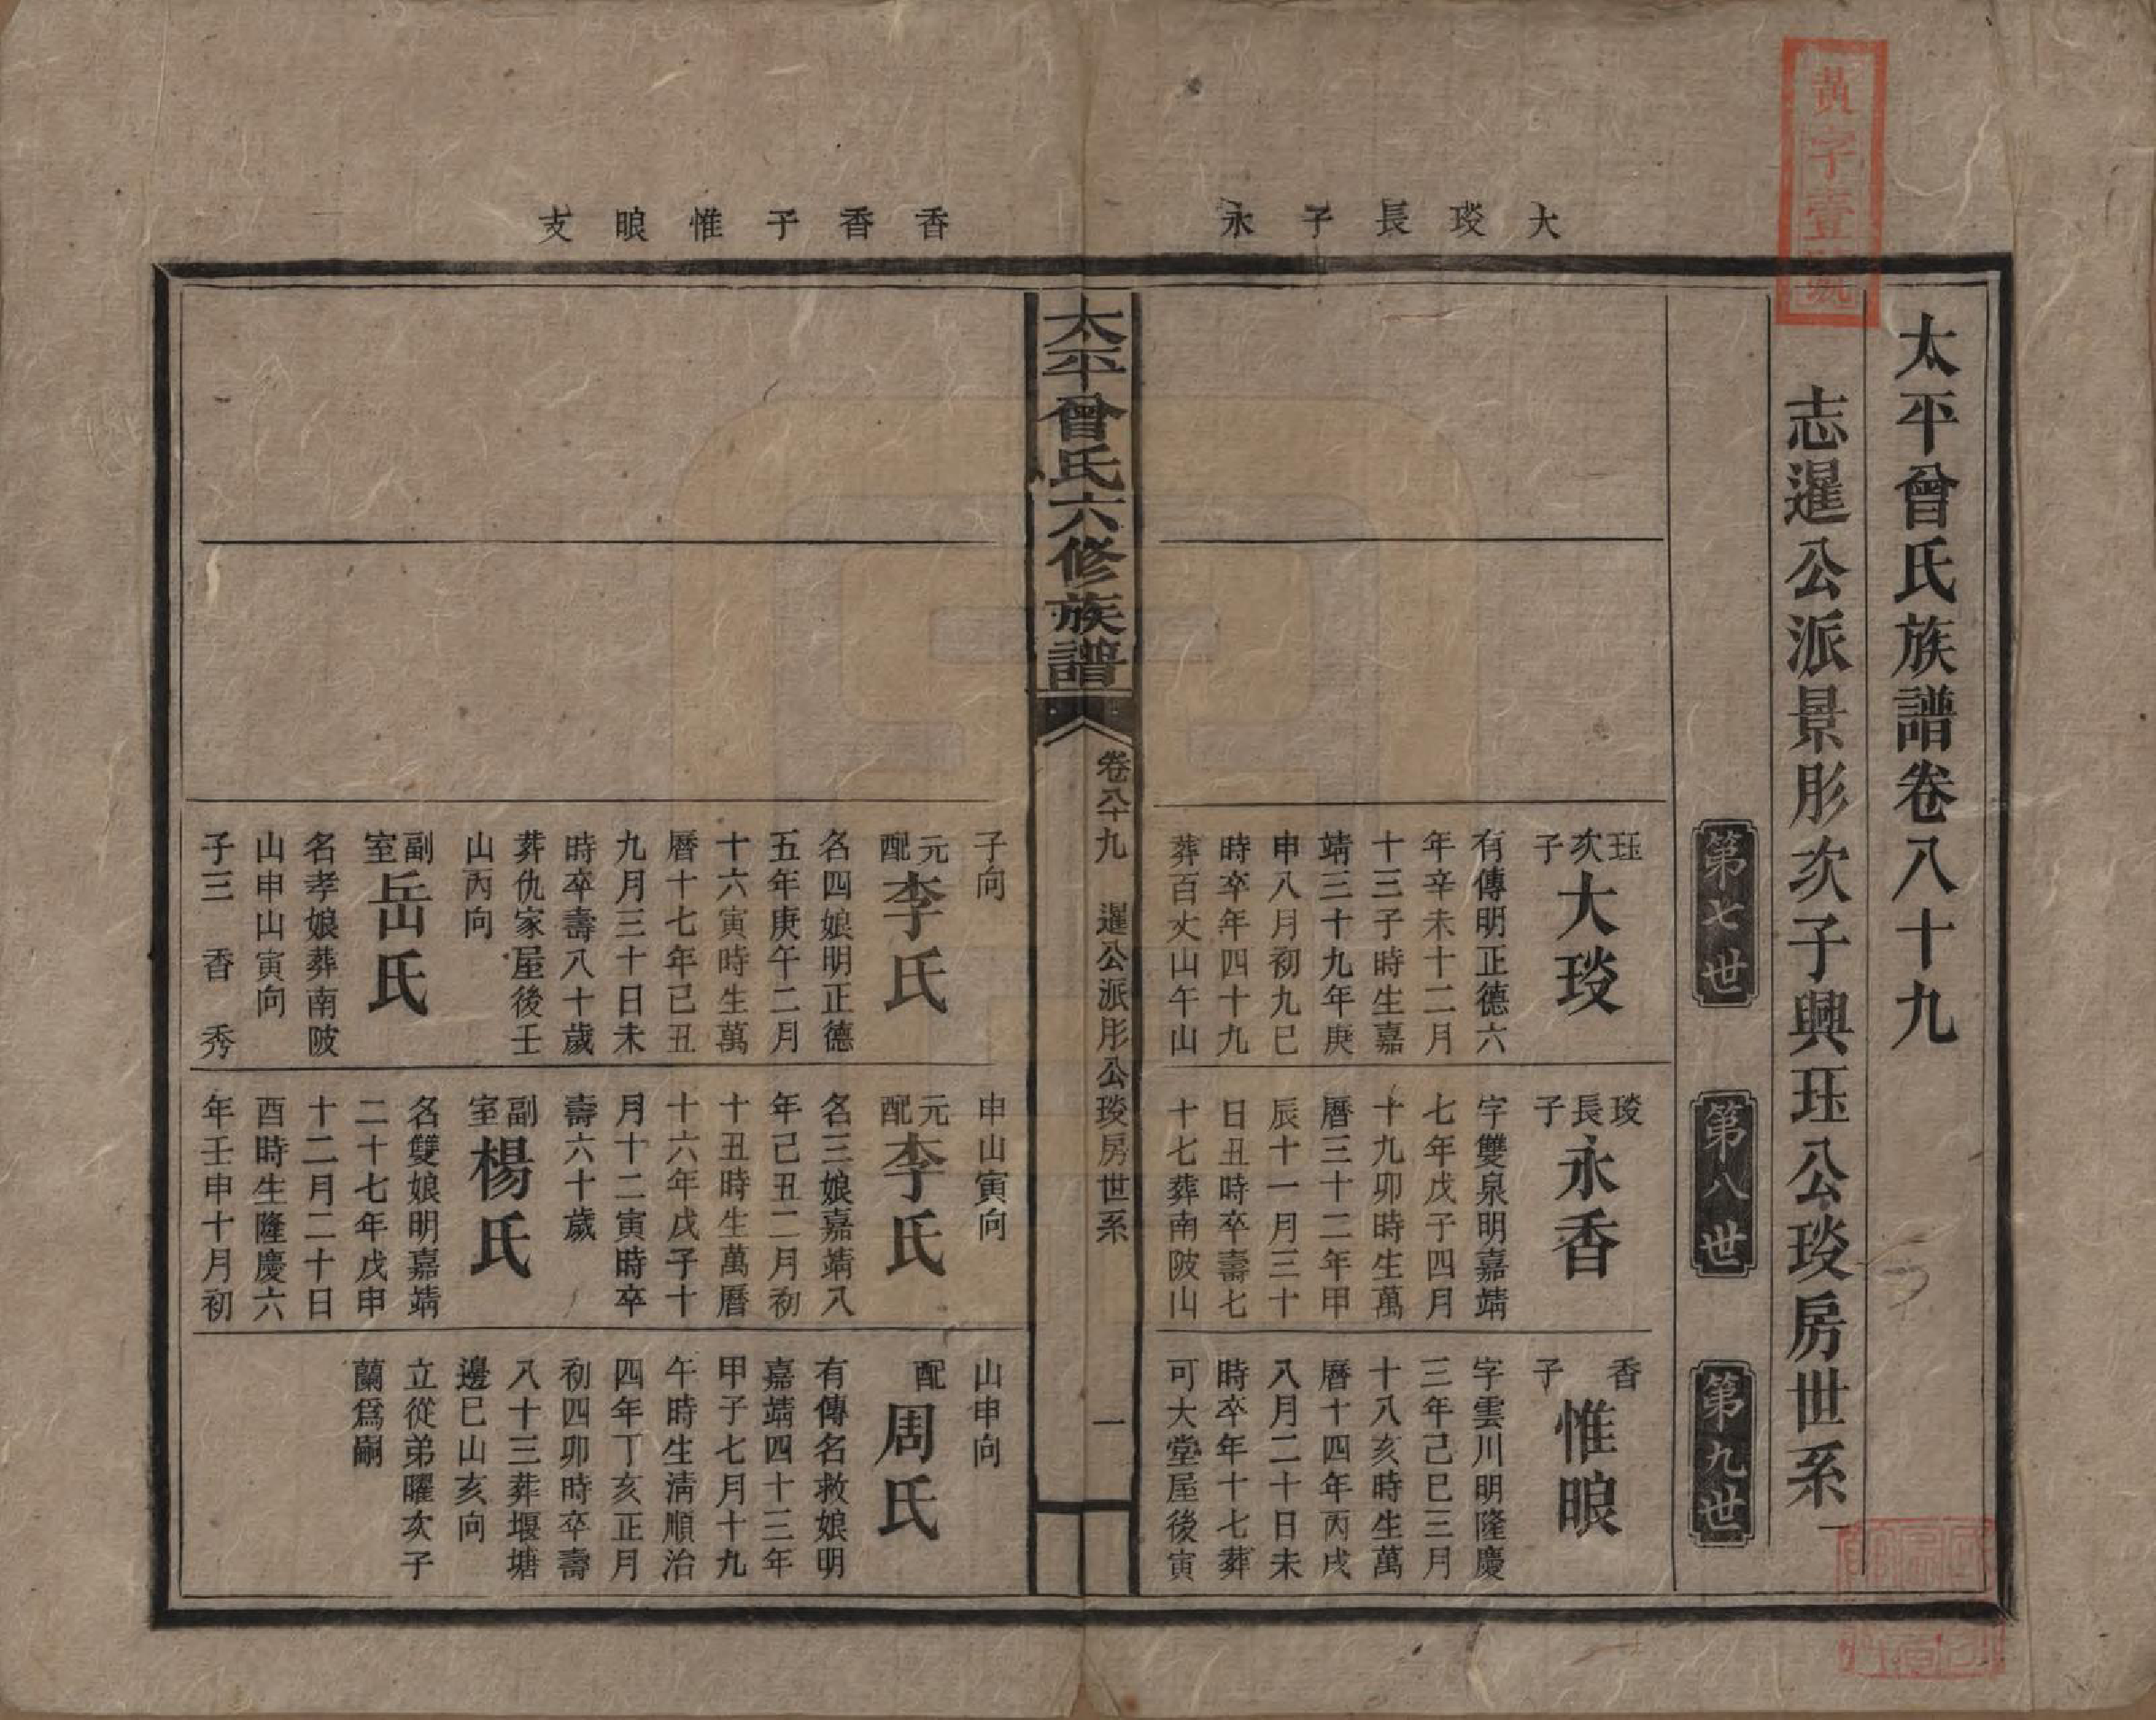 黃字壹號
大琰長子永
香香子惟㫰支
太平曾氏族譜卷八十九
志暹公派景彤次子興珏公琰房世系
第七世
第八世
第九世
珏次子大琰
有傳明正德六
年辛未十二月
十三子時生嘉
靖三十九年庚
申八月初九巳
時卒年四十九
葬百丈山午山
子向
元配李氏
名四娘明正德
五年庚午二月
十六寅時生萬
曆十七年己丑
九月三十日未
時卒壽八十歲
葬仇家屋後壬
山丙向
副室岳氏
名孝娘葬南陂
山申山寅向
子三 香 秀
琰長子永香
字雙泉明嘉靖
七年戊子四月
十九卯時生萬
曆三十二年甲
辰十一月三十
日丑時卒壽七
十七葬南陂山
申山寅向
元配李氏
名三娘嘉靖八
年己丑二月初
十丑時生萬曆
十六年戊子十
月十二寅時卒
壽六十歲
副室楊氏
名雙娘明嘉靖
二十七年戊申
十二月二十日
酉時生隆慶六
年壬申十月初
香子惟㫰
字雲川明隆慶
三年己巳三月
十八亥時生萬
曆十四年丙戌
八月二十日未
時卒年十七葬
可大堂屋後寅
山申向
配周氏
有傳名救娘明
嘉靖四十三年
甲子七月十九
午時生淸順治
四年丁亥正月
初四卯時卒壽
八十三葬堰塘
邊巳山亥向
立從弟曜次子
蘭爲嗣
太平曾氏六修族譜
卷八十九 暹公派彤公琰房世系 一